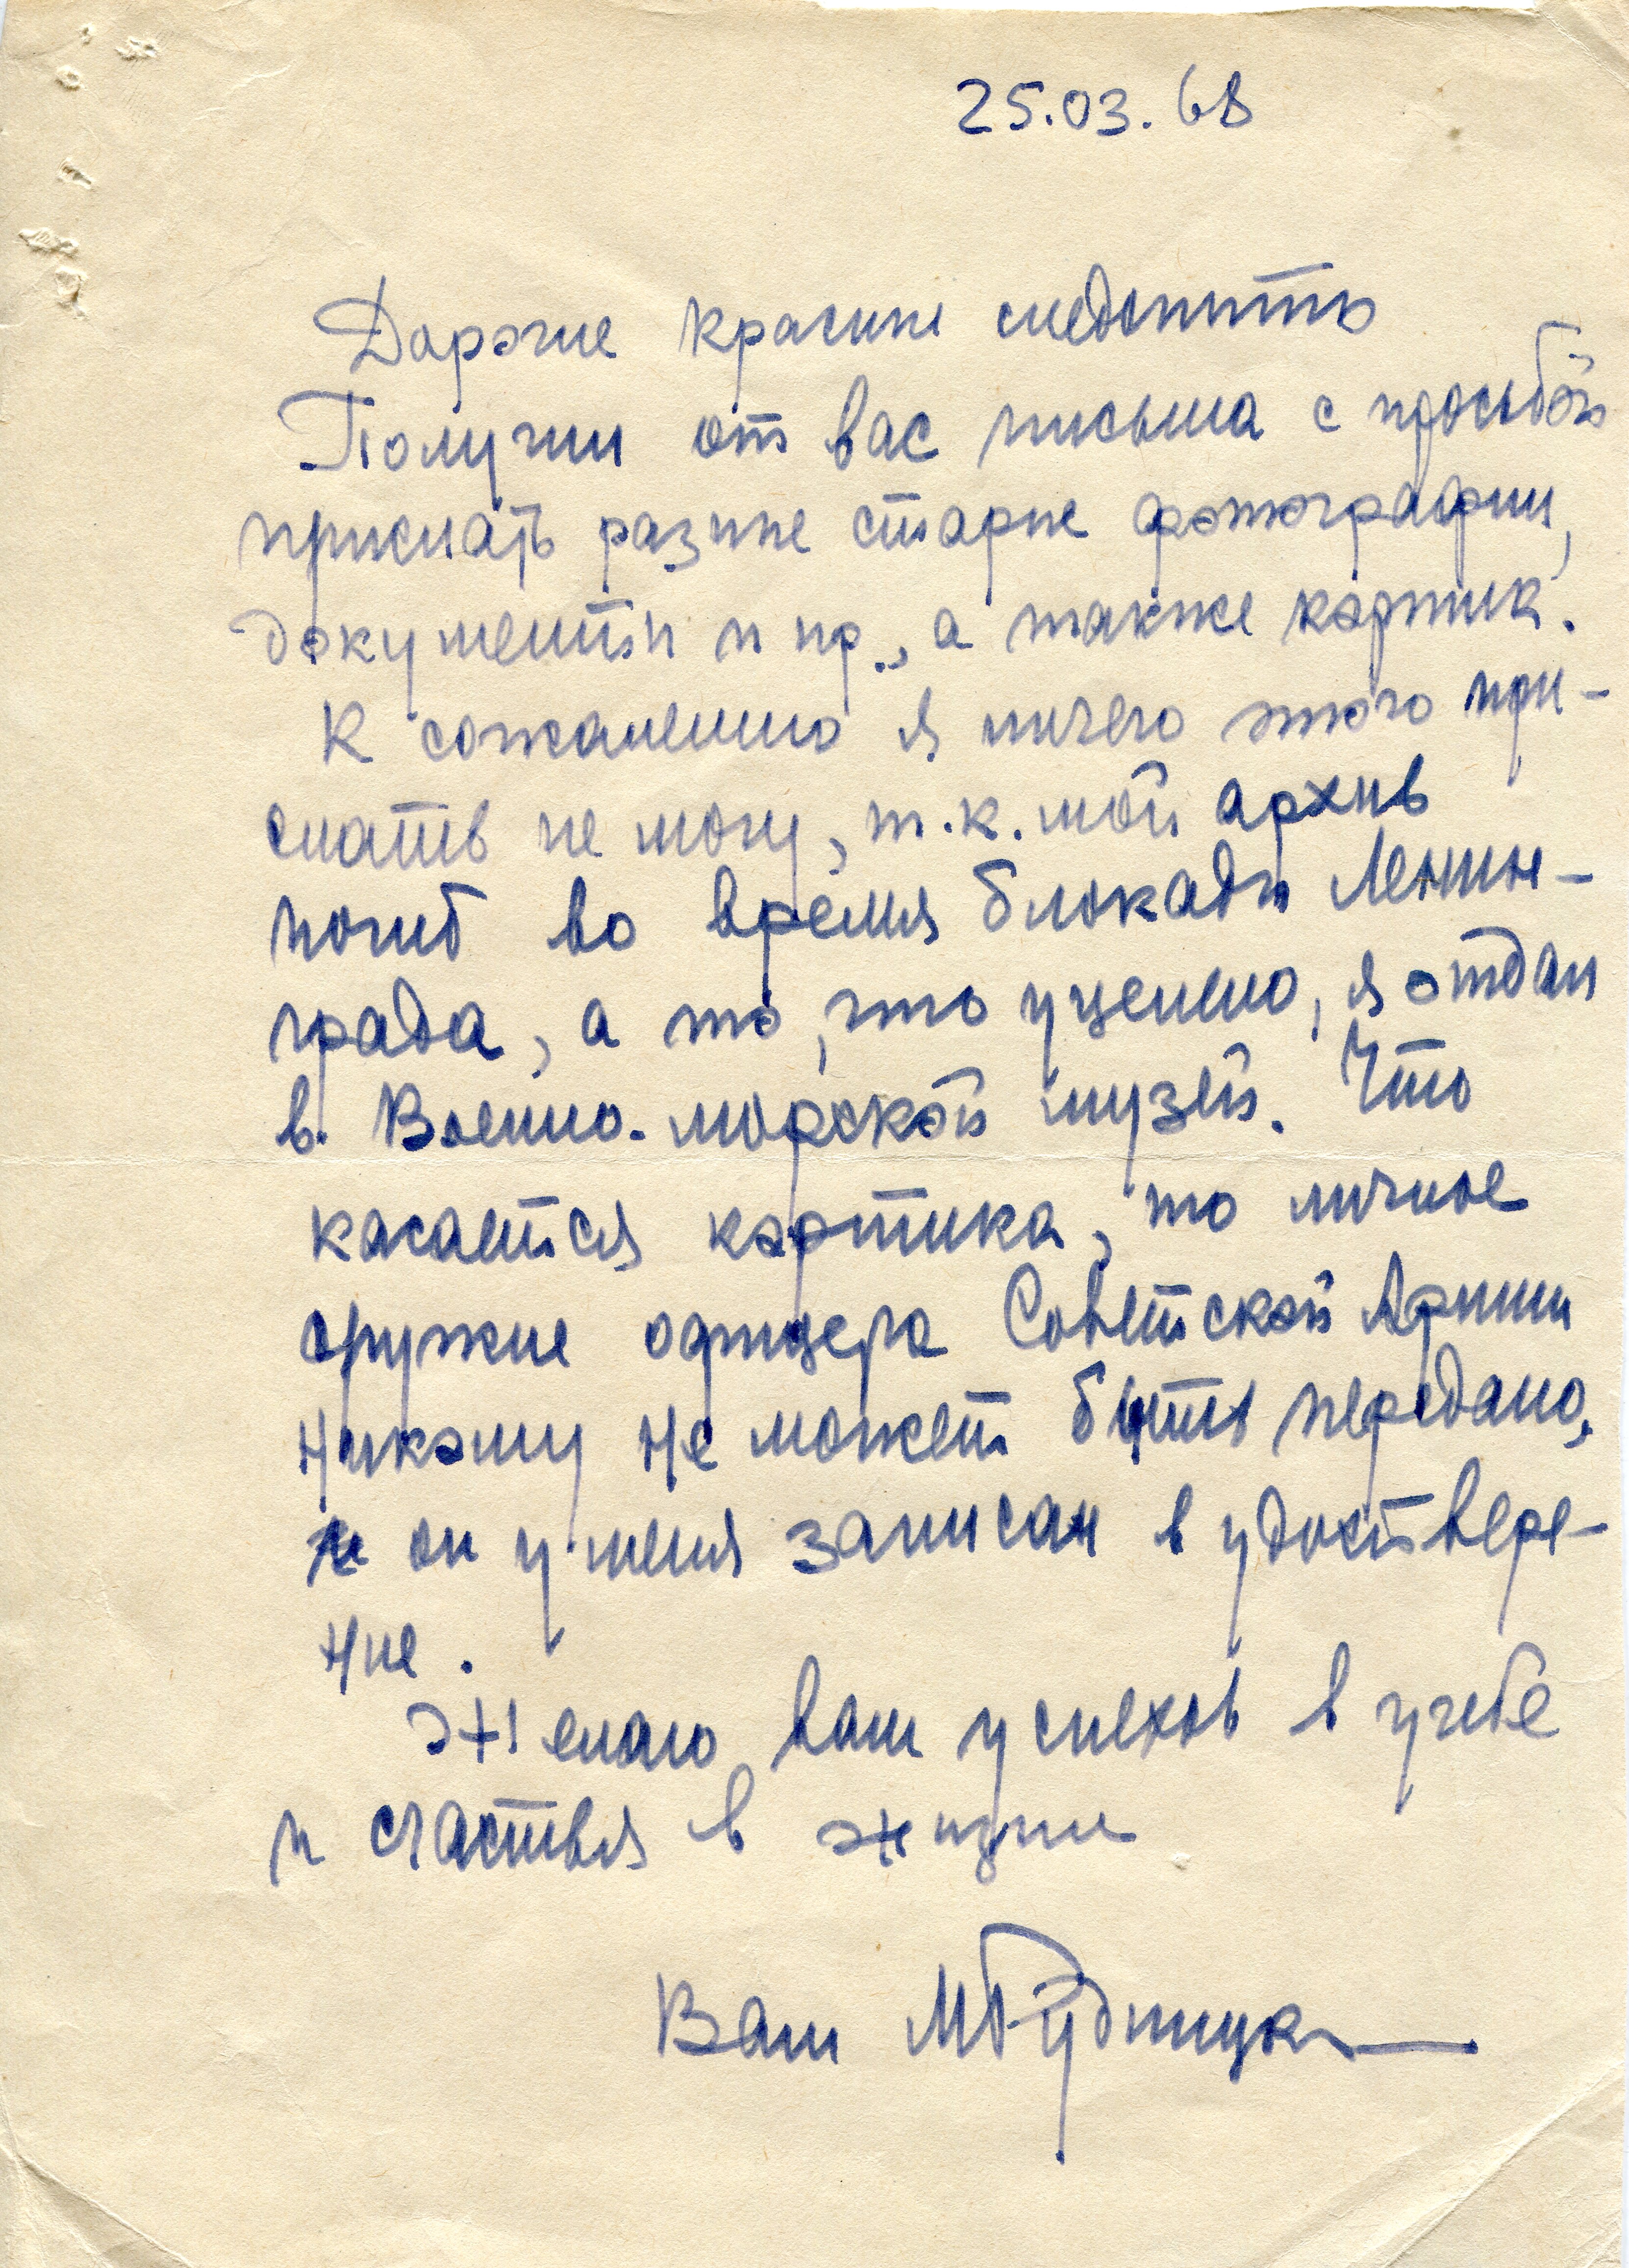 25.03.68
Дорогие красные следопыты
Получил от вас письма с просьбой
прислать разные старые фотографии,
документы и пр., а также кортик.
К сожалению я ничего этого при-
слать не могу, т.к. мой архив
погиб во время блокады Ленин-
града, а то, что уцелело, я отдал
в Военно-морской музей. Что
касается кортика, то личное
оружие офицера Советской Армии
никому не может быть передано,
и он у меня записан в удостовере-
ние.
Желаю вам успехов в учебе
и счастья в жизни
Ваш МРудницк